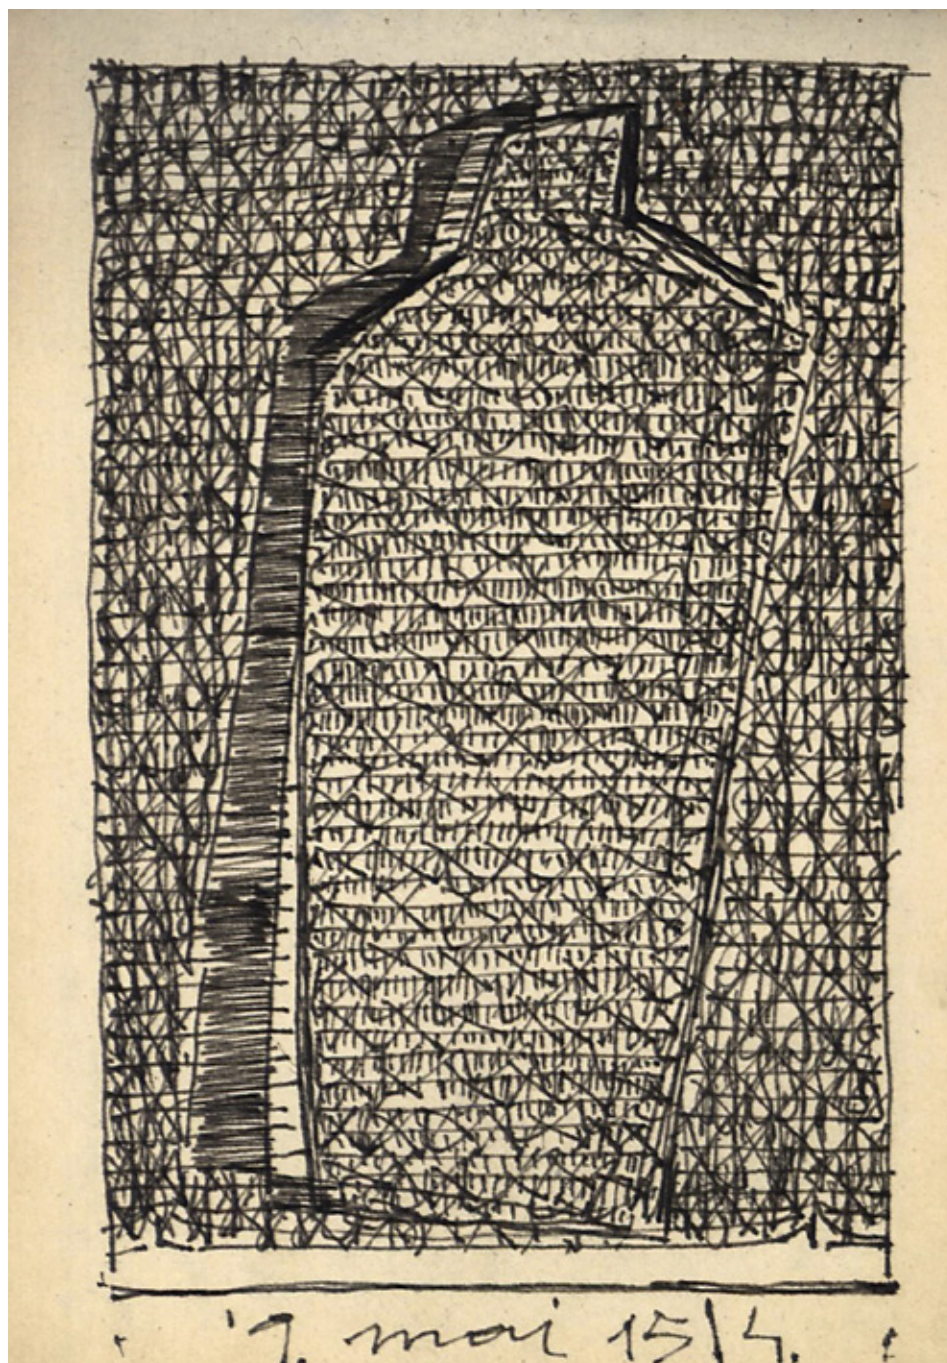 9. mai 15/4.